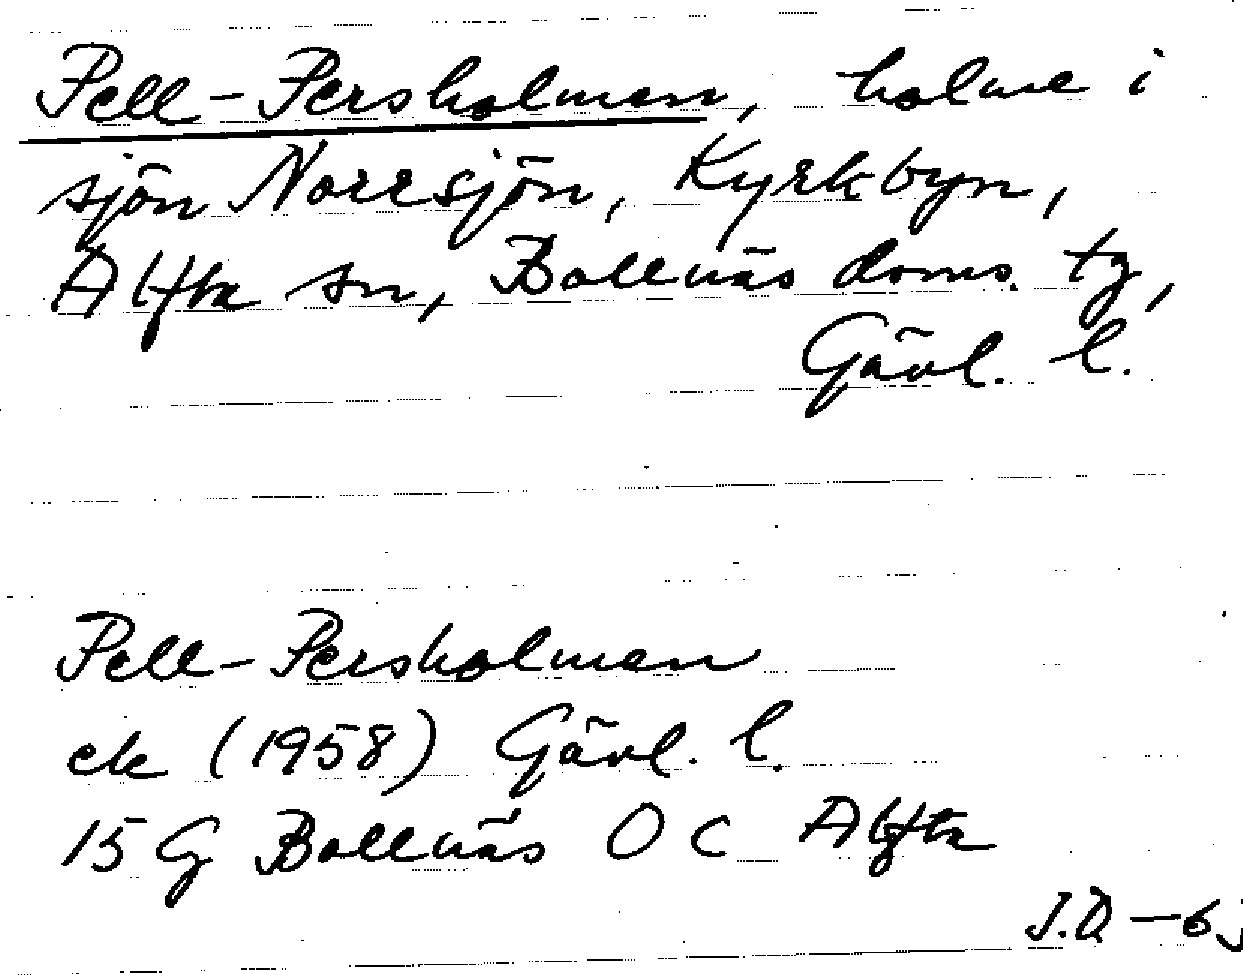 Pell-Persholmen, holme i
sjön Norrsjön, Kyrkbyn,
Alfta sn, Bollnäs doms. tg,
Gävl. l.
Pell-Persholmen
ek (1958) Gävl. l.
15 G Bollnäs O C Alfta
J.Ö -6